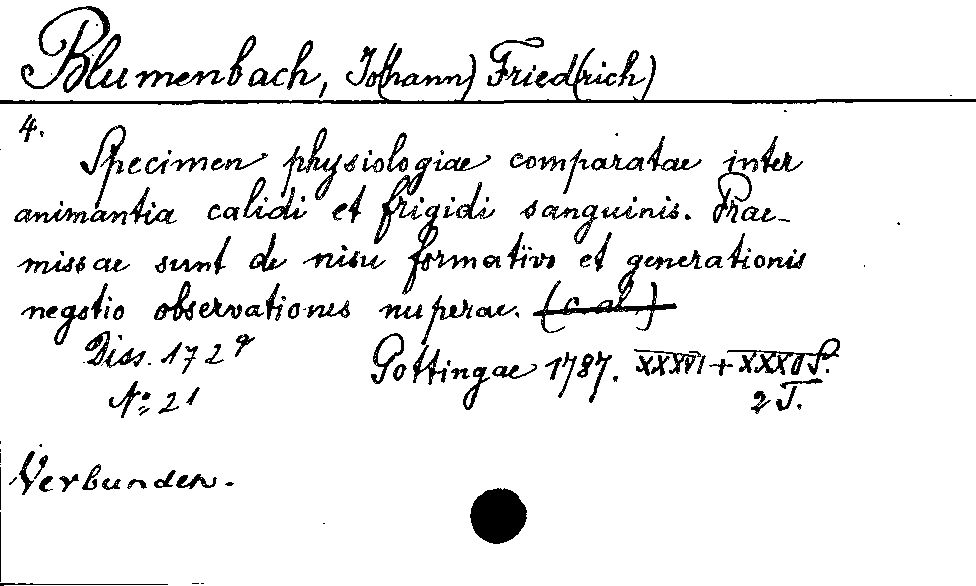 Blumenbach, Joh(ann) Fried(rich)
4.
Specimen physiologiae comparatae inter
animantia calidi et frigidi sanguinis. Prae-
missae sunt de nisu formativo et generationis
negotio observationes nuperae. (c al.)
Diss. 172 q Gottingae 1787. XXXVI + XXXVI S.
No 21 2 T.
Verbunden.